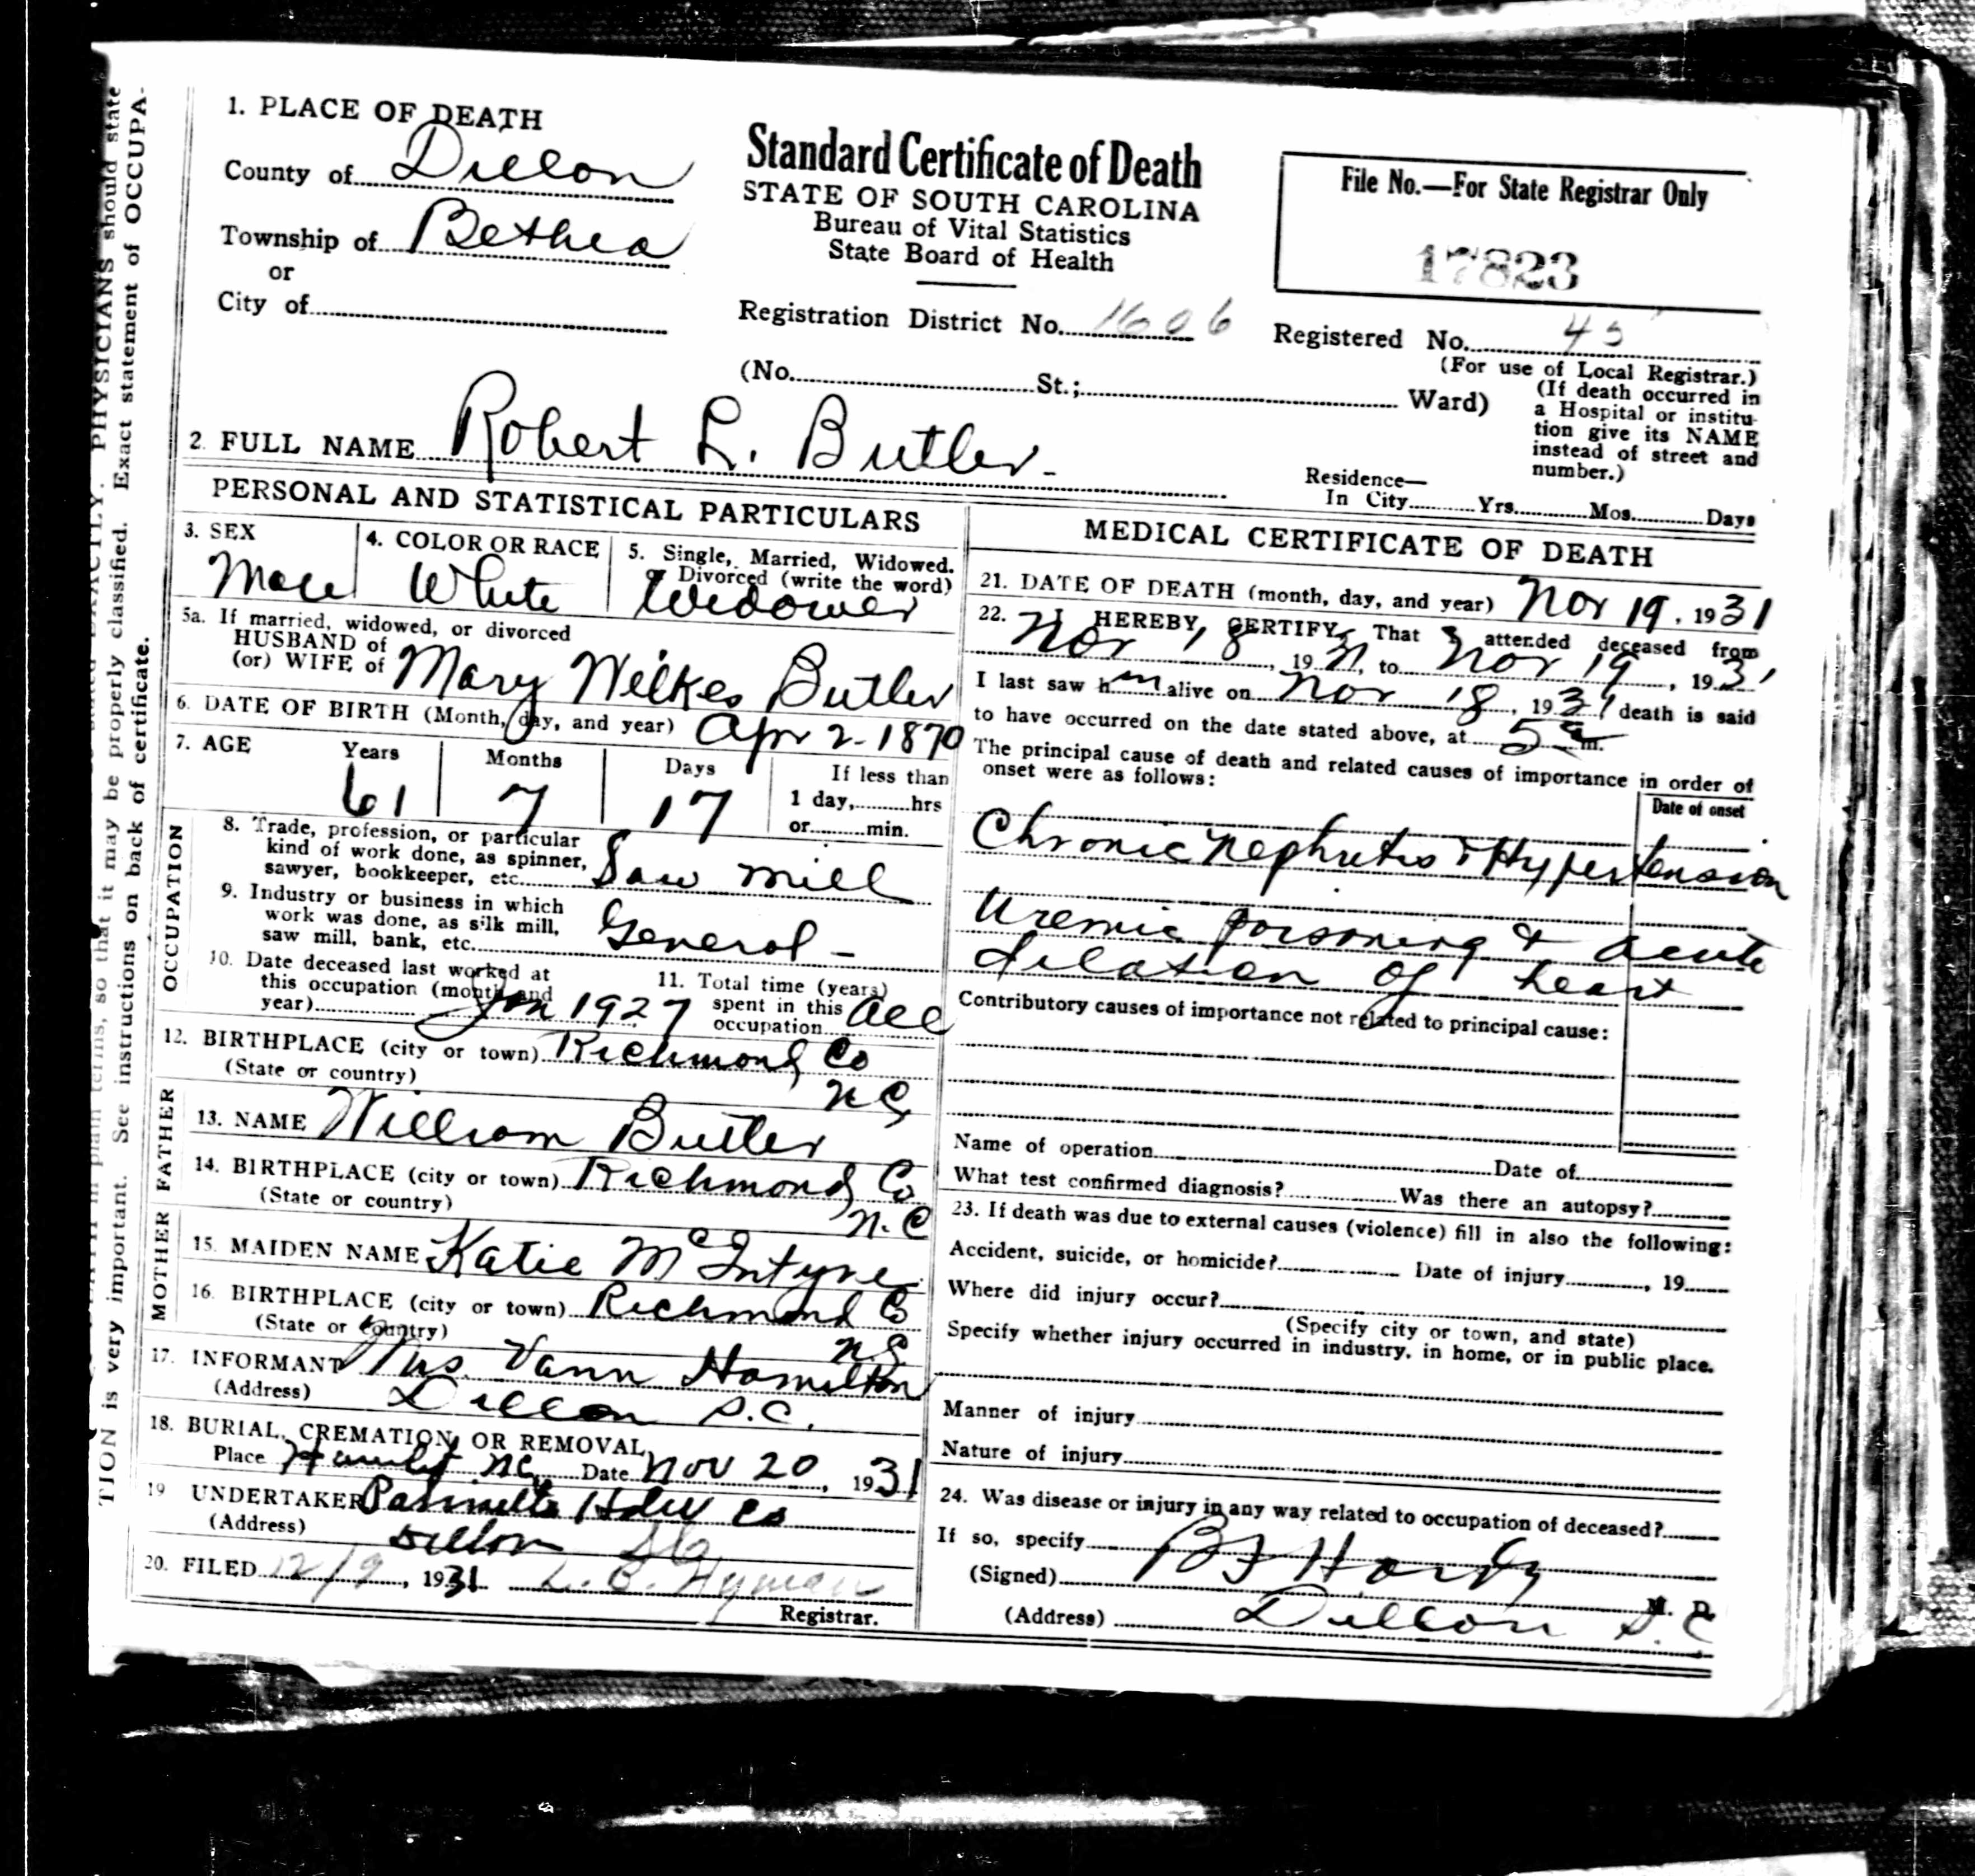 1. PLACE OF DEATH
County of Dillon
Township of Bethea
or
City of
Standard Certificate of Death
STATE OF SOUTH CAROLINA
Bureau of Vital Statistics
State Board of Health
File No.—For State Registrar Only
17823
Registration District No. 1606
Registered No. 45
(For use of Local Registrar.)
(No. St.; Ward)
(If death occurred in
a Hospital or institu-
tion give its NAME
instead of street and
number.)
2. FULL NAME Robert L. Butler
Residence—
In City Yrs. Mos. Days
PERSONAL AND STATISTICAL PARTICULARS
3. SEX
Male
4. COLOR OR RACE
White
5. Single, Married, Widowed.
or Divorced (write the word)
Widower
5a. If married, widowed, or divorced
HUSBAND of
(or) WIFE of Mary Wilkes Butler
6. DATE OF BIRTH (Month, day, and year) Apr 2-1870
7. AGE Years Months Days If less than
61 7 17 1 day, hrs
or min.
OCCUPATION
8. Trade, profession, or particular
kind of work done, as spinner,
sawyer, bookkeeper, etc. Saw mill
9. Industry or business in which
work was done, as silk mill,
saw mill, bank, etc. General -
10. Date deceased last worked at
this occupation (month and
year) Jan 1927
11. Total time (years)
spent in this
occupation All
12. BIRTHPLACE (city or town) Richmond Co
(State or country) N C
FATHER
13. NAME William Butler
14. BIRTHPLACE (city or town) Richmond Co
(State or country) N. C
MOTHER
15. MAIDEN NAME Katie McIntyre
16. BIRTHPLACE (city or town) Richmond Co
(State or country) N.C
17. INFORMANT Mrs. Vann Hamilton
(Address) Dillon S.C.
18. BURIAL, CREMATION, OR REMOVAL
Place Hamlet NC Date Nov 20, 1931
19 UNDERTAKER Palmetto Hdw Co
(Address) Dillon SC
20. FILED 12/9, 1931 L. B. Hyman
Registrar.
MEDICAL CERTIFICATE OF DEATH
21. DATE OF DEATH (month, day, and year) Nov 19, 1931
22. I HEREBY CERTIFY, That I attended deceased from
Nov 18, 1931, to Nov 19, 1931
I last saw him alive on Nov 18, 1931 death is said
to have occurred on the date stated above, at 5 a m.
The principal cause of death and related causes of importance in order of
onset were as follows:
Date of onset
Chronic nephritis & Hypertension
Uremic poisoning & acute
dilation of heart
Contributory causes of importance not related to principal cause:
Name of operation Date of
What test confirmed diagnosis? Was there an autopsy?
23. If death was due to external causes (violence) fill in also the following:
Accident, suicide, or homicide? Date of injury, 19
Where did injury occur?
(Specify city or town, and state)
Specify whether injury occurred in industry, in home, or in public place.
Manner of injury
Nature of injury
24. Was disease or injury in any way related to occupation of deceased?
If so, specify
(Signed) B F Hardy M. D.
(Address) Dillon S.C
PHYSICIANS should state
Exact statement of OCCUPA-
TION is very important. See instructions on back of certificate.
so that it may be properly classified.